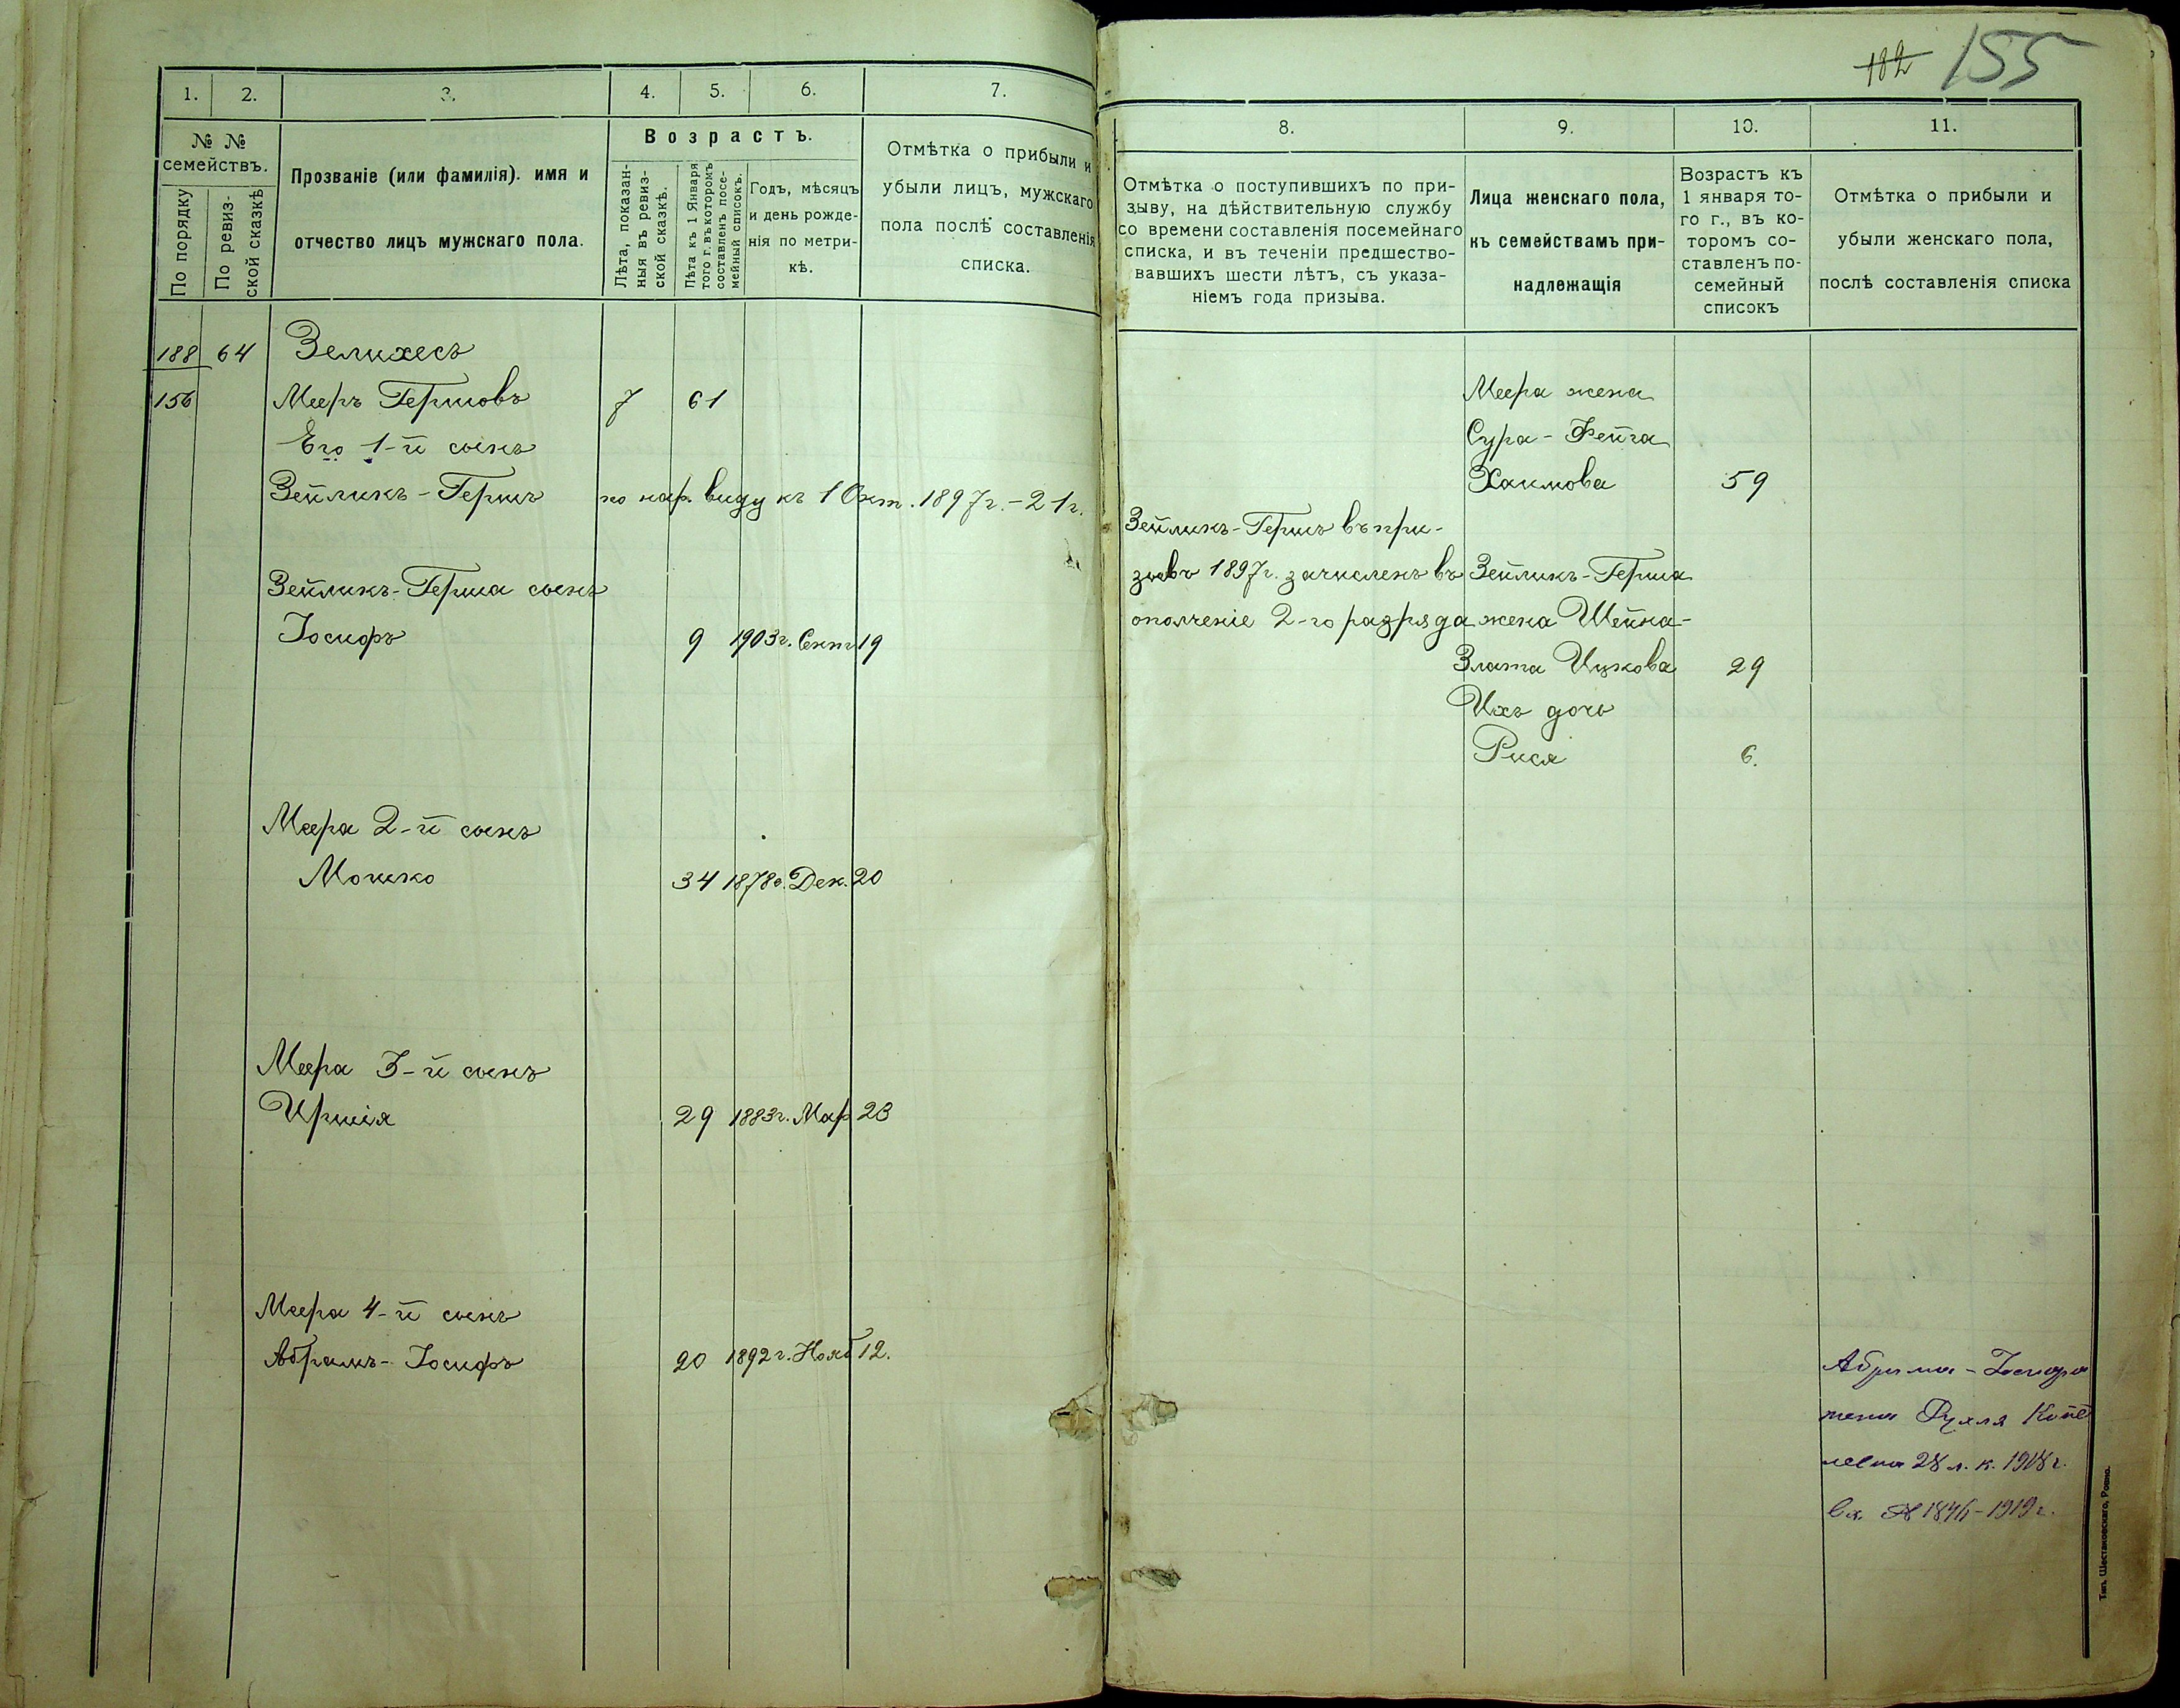 1. 2. 3. 4. 5. 6. 7.
№ № семействъ.
По порядку
По ревизской сказкѣ
Прозваніе (или фамилія). имя и
отчество лицъ мужскаго пола.
Возрастъ.
Лѣта, показан-
ныя въ ревиз-
ской сказкѣ.
Лѣта къ 1 Января
того г. въ которомъ
составленъ посе-
мейный списокъ.
Годъ, мѣсяцъ
и день рожде-
нія по метри-
кѣ.
Отмѣтка о прибыли и
убыли лицъ, мужскаго
пола послѣ составленія
списка.
188 64 Зелихесъ
156 Мееръ Гершовъ 7 61
Его 1-й сынъ
Зейликъ-Гершъ по нар. виду къ 1 Окт. 1897г.-21г.
Зейликъ-Герша сынъ
Іосифъ 9 1903г. Сент 19
Меера 2-й сынъ
Мошко 34 1878г. Дек. 20
Меера 3-й сынъ
Иршія 29 1883г. Мар 23
Меера 4-й сынъ
Абрамъ-Іосифъ 20 1892г. Нояб 12.
182 155
8. 9. 10. 11.
Отмѣтка о поступившихъ по при-
зыву, на дѣйствительную службу
со времени составленія посемейнаго
списка, и въ теченіи предшество-
вавшихъ шести лѣтъ, съ указа-
ніемъ года призыва.
Лица женскаго пола,
къ семействамъ при-
надлежащія
Возрастъ къ
1 января то-
го г., въ ко-
торомъ со-
ставленъ по-
семейный
списокъ
Отмѣтка о прибыли и
убыли женскаго пола,
послѣ составленія списка
Меера жена
Сура-Фейга
Хаимова 59
Зейликъ-Гершъ въ при-
зывъ 1897г. зачисленъ въ
ополченіе 2-го разряда
Зейликъ-Герша
жена Шейна-
Злата Ицкова 29
Ихъ дочь
Рися 6.
Абрама-Іосифа
жена Рухля Копе
левна 28 л. к. 1918г.
вх. № 1846-1919г.
Тип. Шестаковскаго, Ровно.